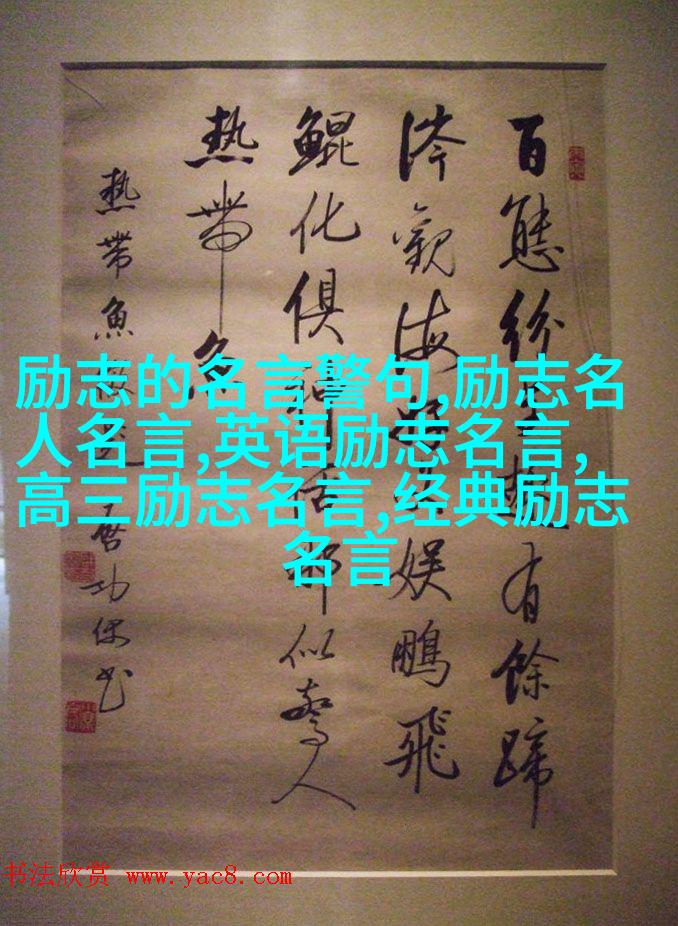 百態紛呈趣有餘蹄
涔觀海娱鵬飛
鯤化俱神話那似驚人
熱帶魚
熱帶魚 啓功
励志的名言警句,励志名
人名言,英语励志名言,
高三励志名言,经典励志
名言
书法欣赏 www.yac8.com